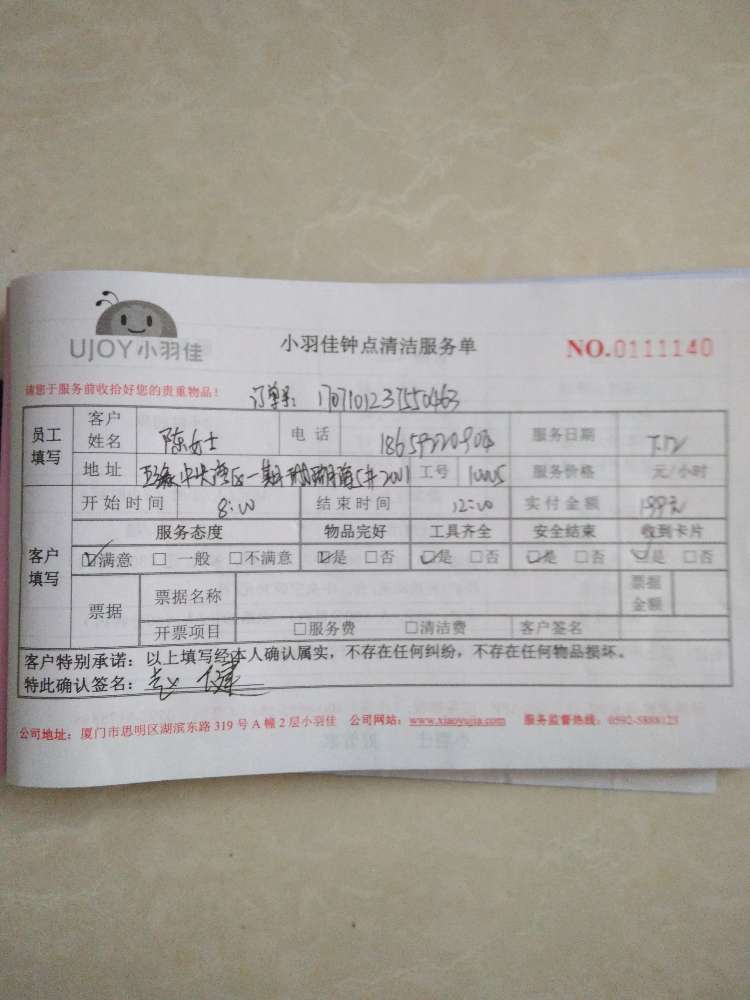 UJOY小羽佳
小羽佳钟点清洁服务单
NO.0111140
请您于服务前收拾好您的贵重物品！
订单号：1707101237550463
员工填写 客户姓名 陈女士 电话 18659220904 服务日期 7.12
地址 中央湾区一期 5#2001 工号 服务价格 元/小时
客户填写 开始时间 8:00 结束时间 12:00 实付金额 199元
服务态度 物品完好 工具齐全 安全结束 收到卡片
☑满意 □一般 □不满意 ☑是 □否 ☑是 □否 ☑是 □否 ☑是 □否
票据 票据名称 票据金额
开票项目 □服务费 □清洁费 客户签名
客户特别承诺：以上填写经本人确认属实，不存在任何纠纷，不存在任何物品损坏。
特此确认签名：
公司地址：厦门市思明区湖滨东路 319 号 A 幢 2 层小羽佳 公司网站：www.xiaoyujia.com 服务监督热线：0592-5888123